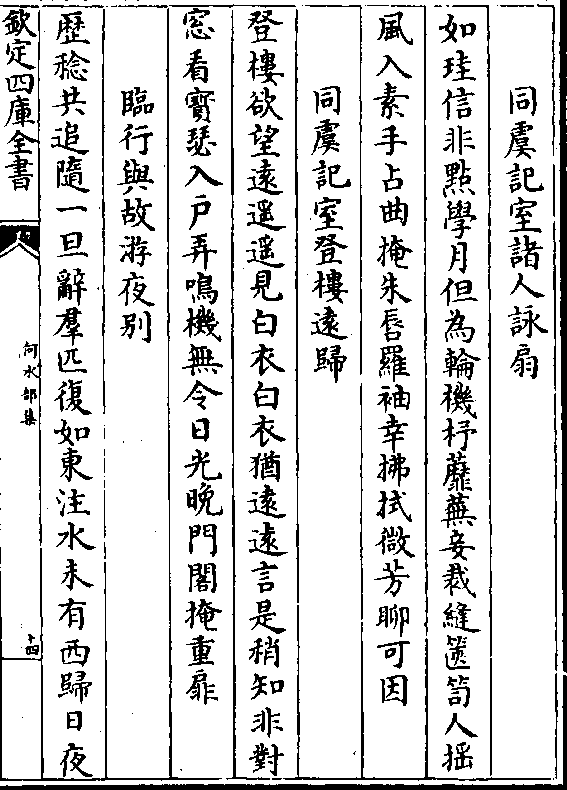 同虞記室諸人詠扇
如珪信非點學月但為輪機杼蘼蕪妾裁縫篋笥人揺
風入素手占曲掩朱唇羅袖幸拂拭微芳聊可因
同虞記室登樓遠歸
登樓欲望遠遥遥見白衣白衣猶遠遠言是稍知非對
窓看寳瑟入戸弄鳴機無令日光晚門闇掩重扉
臨行與故游夜别
歴稔共追隨一旦辭羣匹復如東注水未有西歸日夜
欽定四庫全書
何水部集
十四